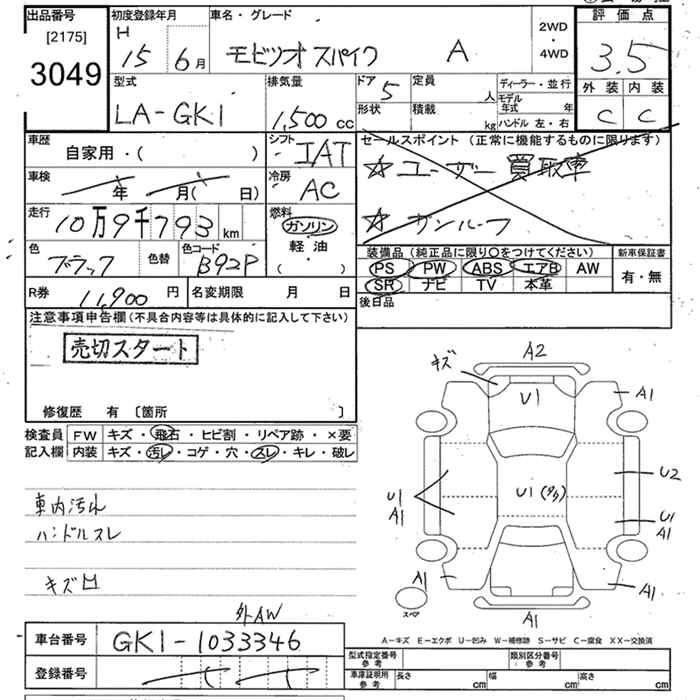 出品番号 初度登録年月 車名・グレード 評価点
[2175] H 2WD
3049 15年 6月 モビリオスパイク A ・ 3.5
4WD
外装 内装
型式 排気量 ドア 5 定員 人 ディーラー・並行 C C
LA-GK1 1,500 cc 形状 積載 kg モデル年式 年
ハンドル 左・右
車歴 シフト セールスポイント (正常に機能するものに限ります)
自家用・( ) IAT ☆ユーザー買取車
車検 年 月( 日) 冷房 AC
走行 10万9千793km 燃料 ガソリン ☆サンルーフ
色 色替 色コード 軽・油
ブラック B92P ( ・ ) 装備品 (純正品に限り○をつけてください) 新車保証書
PS PW ABS エアB AW 有・無
SR ナビ TV 本革
R券 11,900円 名変期限 月 日 後日品
注意事項申告欄 (不具合内容等は具体的に記入して下さい)
売切スタート
修復歴 有 〔箇所 〕
検査員 FW キズ・飛石・ヒビ割・リペア跡・×要
記入欄 内装 キズ・汚レ・コゲ・穴・スレ・キレ・破レ
車内汚れ
ハンドルスレ
キズ凹
キズ A2
U1 A1
U1 U1 U2
A1 U1
A1
A1 A1
スペア A1
外AW
A−キズ E−エクボ U−凹み W−補修跡 S−サビ C−腐食 XX−交換済
車台番号 GK1-1033346
登録番号
型式指定番号 参考 類別区分番号 参考
車庫証明用 参考 長さ cm 幅 cm 高さ cm